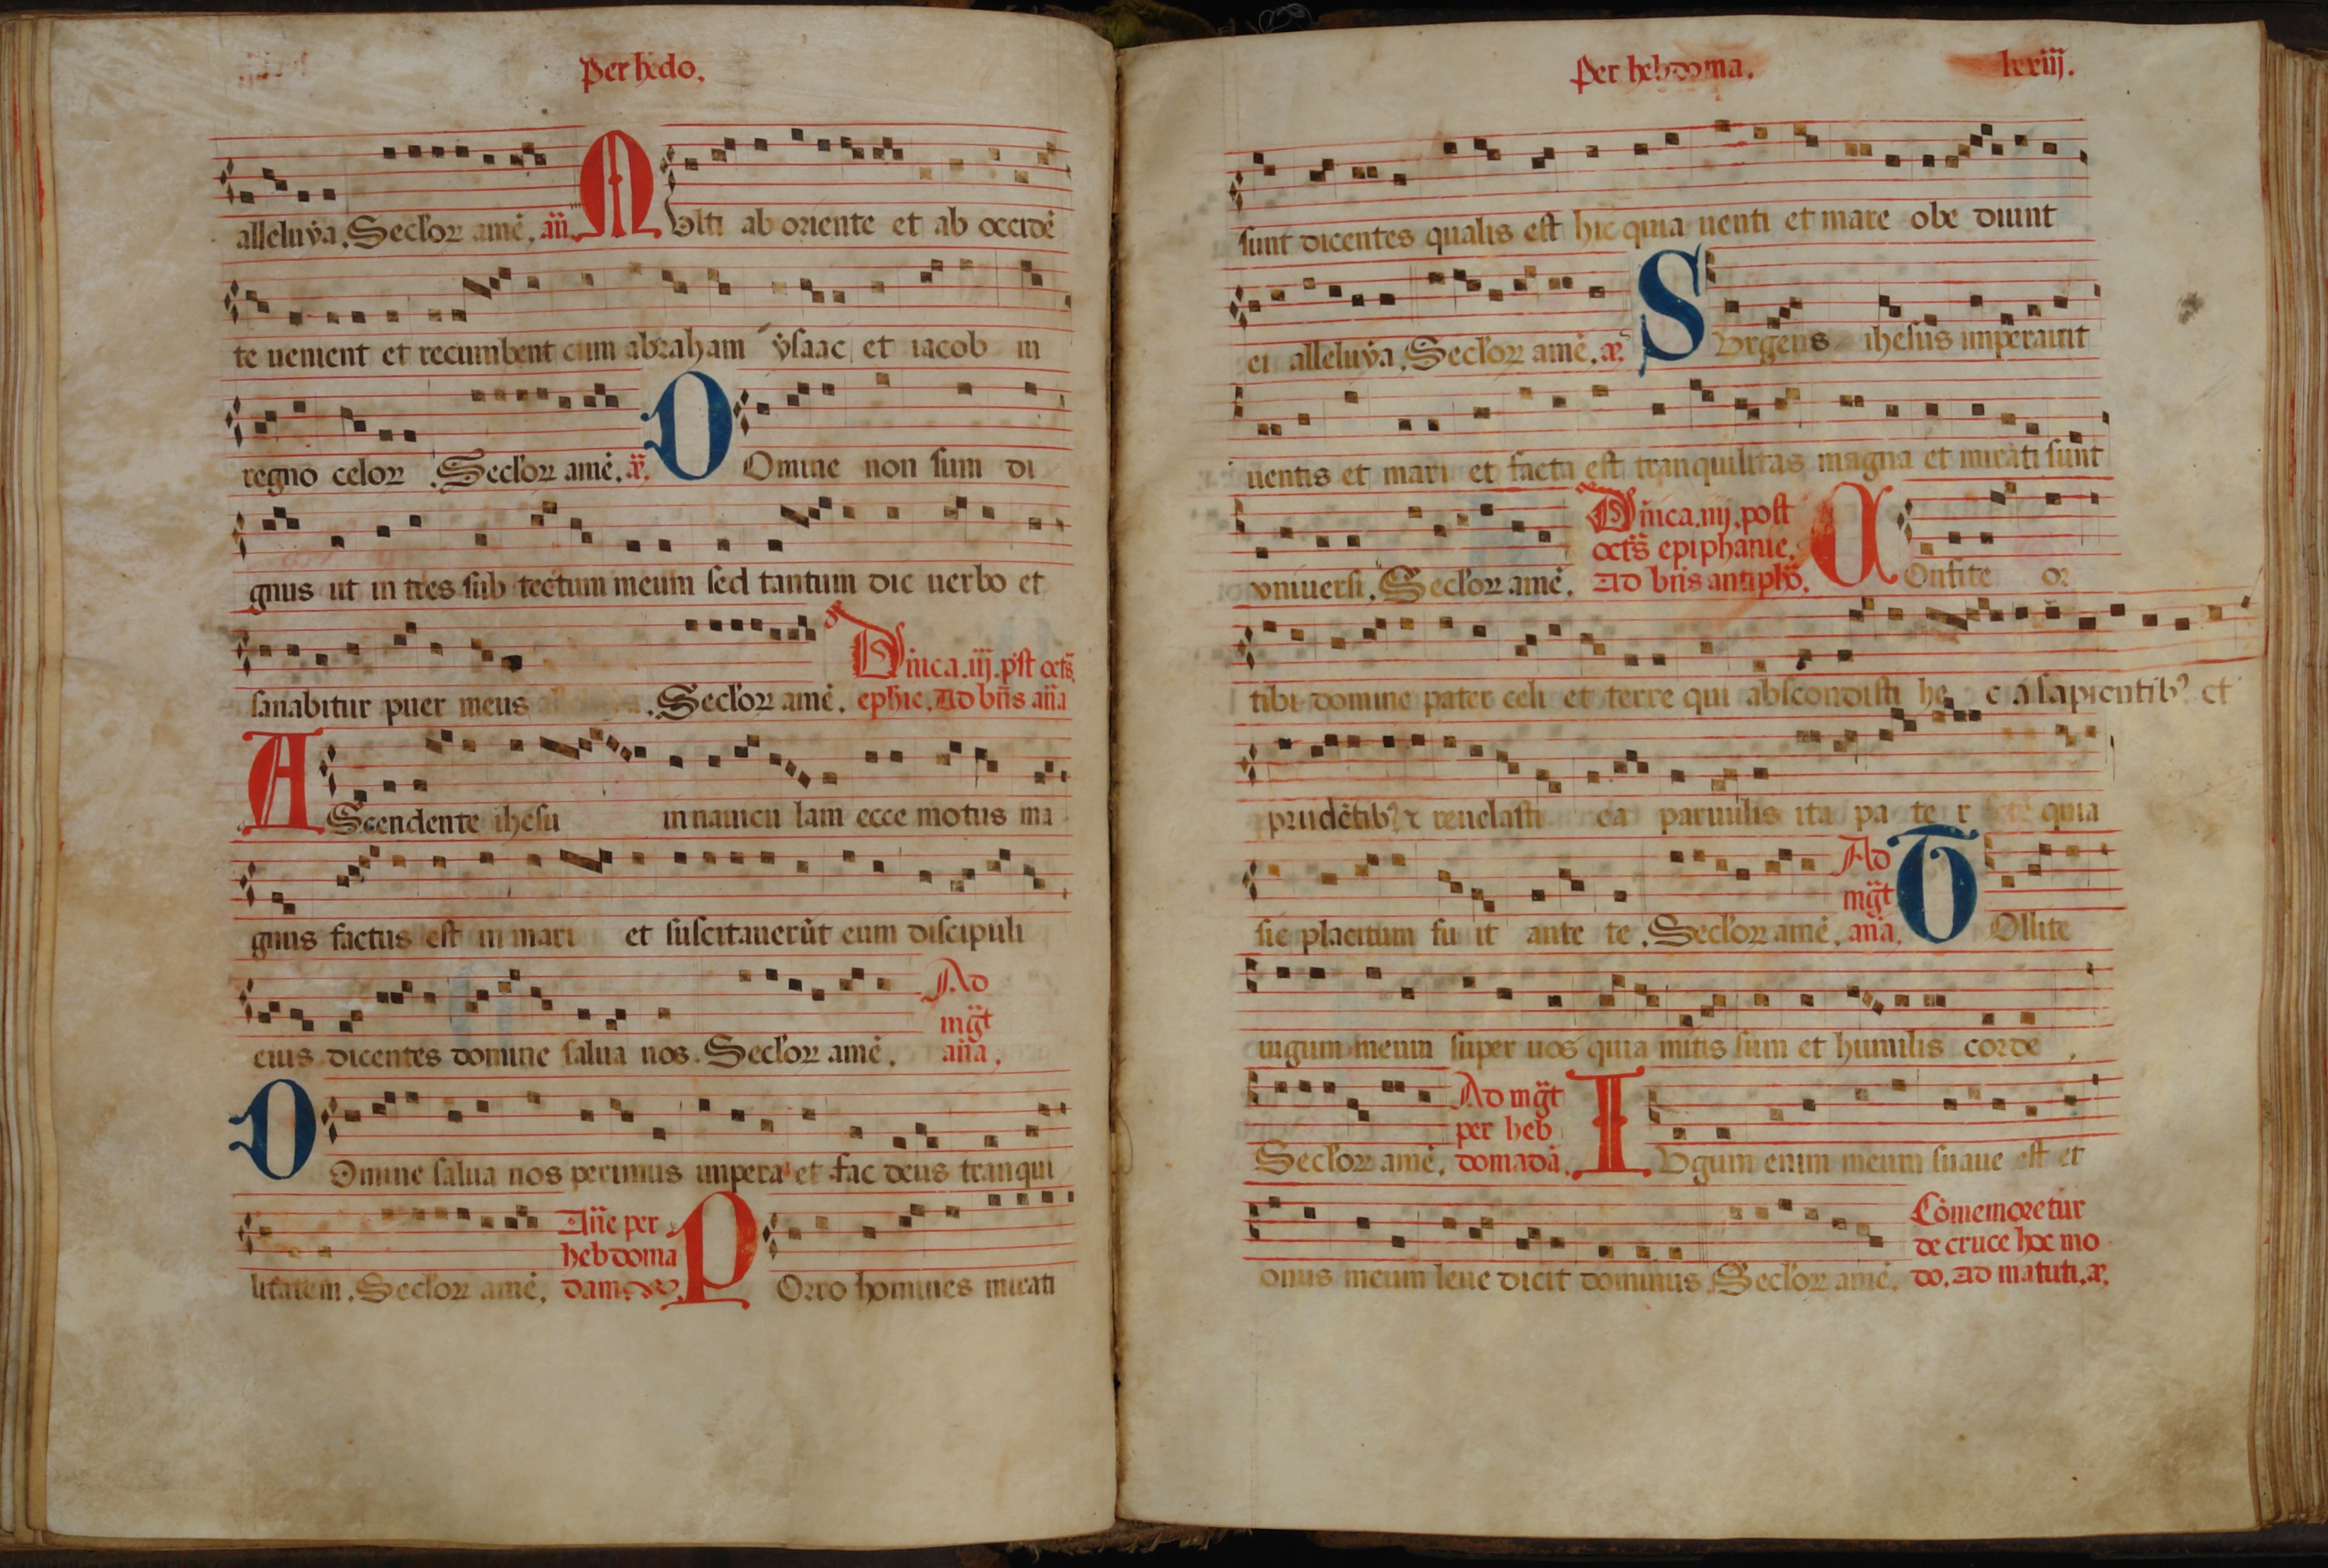 Per hedo.
alleluya. Seclor amē. añ. Multi ab oriente et ab occidē
te uenient et recumbent cum abraham ysaac et iacob in
regno celor. Seclor amē. Domine non sum di
gnus ut in tres sub tectum meum sed tantum dic uerbo et
sanabitur puer meus Seclor amē.
Dñica. iij. pst octs
ephie. Ad bñs aña
AScendente ihesu in nauicu lam ecce motus ma
gnus factus est in mari et suscitauerūt eum discipuli
eius dicentes domine salua nos. Seclor amē. Ad mgt aña.
DOmine salua nos perimus impera et fac deus tranqui
litatem. Seclor amē. Añe per hebdoma dam. POrro homines mirati
Per hebdoma. lxxiij.
sunt dicentes qualis est hic quia uenti et mare obe diunt
ei alleluya. Seclor amē. Surgens ihesus imperauit
uentis et mari et facta est tranquilitas magna et mirati sunt
vniuersi. Seclor amē.
Dñica. iiij. post
octs epiphanie.
Ad bñs antiphō.
COnfite or
tibi domine pater celi et terre qui abscondisti he c a sapientibꝰ et
prudētibꝰ ⁊ reuelasti ea paruulis ita pa te r quia
sic placitum fu it ante te. Seclor amē. Ad mgt aña. TOllite
iugum meum super uos quia mitis sum et humilis corde
Seclor amē. Ad mgt per heb domadā. IUgum enim meum suaue est et
onus meum leue dicit dominus. Seclor amē.
Cōmemoretur
de cruce hoc mo
do. Ad matuti.